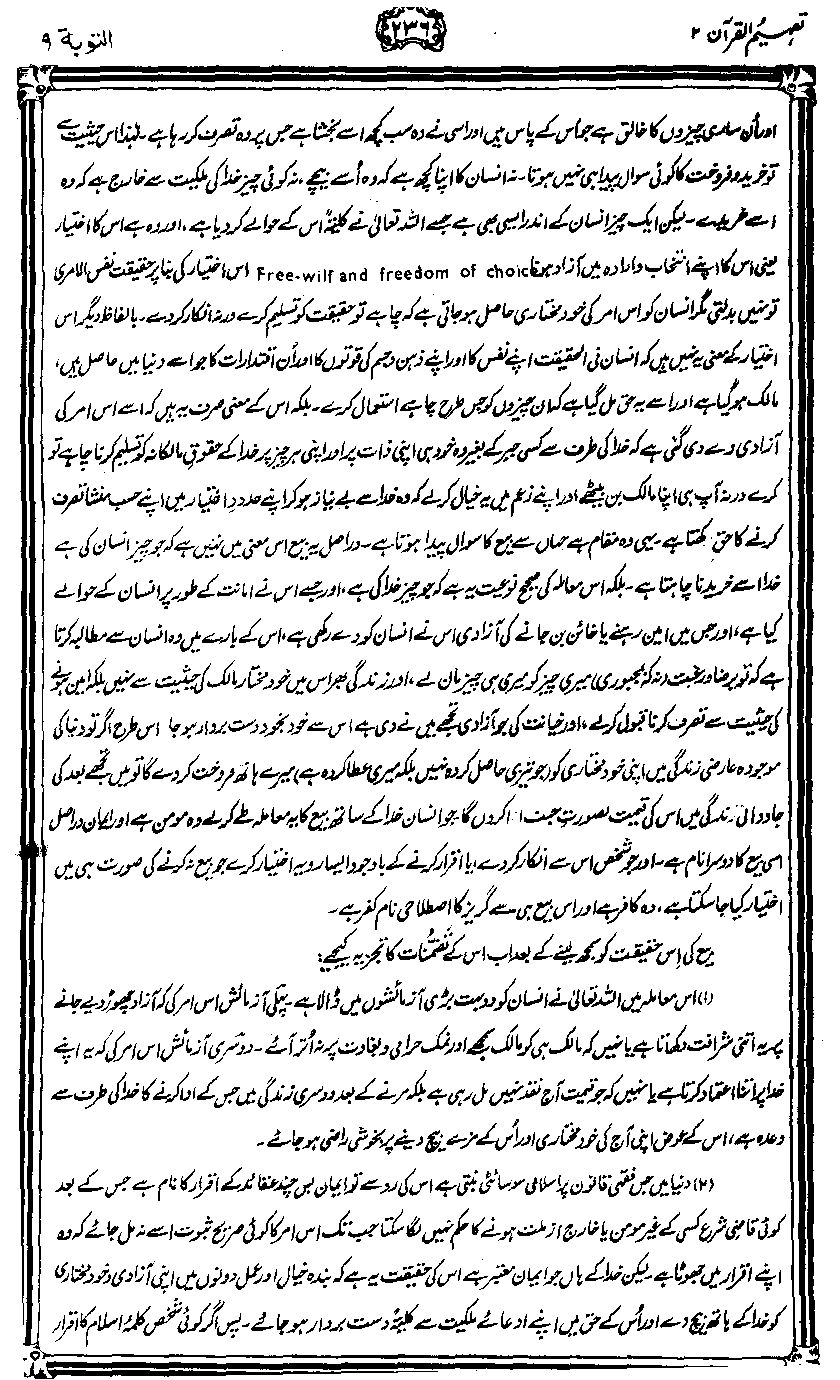 تفہیم القرآن ۲
۲۳۶
التوبۃ ۹
اور اُن ساری چیزوں کا خالق ہے جو اس کے پاس ہیں اور اسی نے وہ سب کچھ اسے بخشا ہے جس پر وہ تصرف کر رہا ہے۔ لہٰذا اس حیثیت سے
تو خرید و فروخت کا کوئی سوال پیدا ہی نہیں ہوتا۔ نہ انسان کا اپنا کچھ ہے کہ وہ اُسے بیچے، نہ کوئی چیز خدا کی ملکیت سے خارج ہے کہ وہ
اسے خریدے۔ لیکن ایک چیز انسان کے اندر ایسی بھی ہے جسے اللہ تعالیٰ نے کلیۃً اس کے حوالے کر دیا ہے، اور وہ ہے اس کا اختیار
یعنی اس کا اپنے انتخاب و ارادہ میں آزاد ہونا Free-wilf and freedom of choic اس اختیار کی بنا پر حقیقت نفس الامری
تو نہیں بدلتی مگر انسان کو اس امر کی خود مختاری حاصل ہو جاتی ہے کہ چاہے تو حقیقت کو تسلیم کرے ورنہ انکار کر دے۔ بالفاظ دیگر اس
اختیار کے معنی یہ نہیں ہیں کہ انسان فی الحقیقت اپنے نفس کا اور اپنے ذہن و جسم کی قوتوں کا اور اُن اقتدارات کا جو اسے دنیا میں حاصل ہیں،
مالک ہو گیا ہے اور اسے یہ حق مل گیا ہے کہ ان چیزوں کو جس طرح چاہے استعمال کرے۔ بلکہ اس کے معنی صرف یہ ہیں کہ اسے اس امر کی
آزادی دے دی گئی ہے کہ خدا کی طرف سے کسی جبر کے بغیر وہ خود ہی اپنی ذات پر اور اپنی ہر چیز پر خدا کے حقوقِ مالکانہ کو تسلیم کرنا چاہے تو
کرے ورنہ آپ ہی اپنا مالک بن بیٹھے اور اپنے زعم میں یہ خیال کر لے کہ وہ خدا سے بے نیاز ہو کر اپنے حدودِ اختیار میں اپنے حسب منشا تصرف
کرنے کا حق رکھتا ہے۔ یہی وہ مقام ہے جہاں سے بیع کا سوال پیدا ہوتا ہے۔ دراصل یہ بیع اس معنی میں نہیں ہے کہ جو چیز انسان کی ہے
خدا اسے خریدنا چاہتا ہے۔ بلکہ اس معاملہ کی صحیح نوعیت یہ ہے کہ جو چیز خدا کی ہے، اور جسے اس نے امانت کے طور پر انسان کے حوالے
کیا ہے، اور جس میں امین رہنے یا خائن بن جانے کی آزادی اس نے انسان کو دے رکھی ہے، اس کے بارے میں وہ انسان سے مطالبہ کرتا
ہے کہ تو برضا و رغبت (نہ کہ بمجبوری) میری چیز کو میری ہی چیز مان لے، اور زندگی بھر اس میں خود مختار مالک کی حیثیت سے نہیں بلکہ امین ہونے
کی حیثیت سے تصرف کرنا قبول کر لے، اور خیانت کی جو آزادی تجھے میں نے دی ہے اس سے خود بخود دست بردار ہو جا اس طرح اگر تو دنیا کی
موجودہ عارضی زندگی میں اپنی خود مختاری کو (جو تیری حاصل کردہ نہیں بلکہ میری عطا کردہ ہے) میرے ہاتھ فروخت کر دے گا تو میں تجھے بعد کی
جاودانی زندگی میں اس کی قیمت بصورتِ جنت ادا کروں گا۔ جو انسان خدا کے ساتھ بیع کا یہ معاملہ طے کر لے وہ مومن ہے اور ایمان دراصل
اسی بیع کا دوسرا نام ہے۔ اور جو شخص اس سے انکار کر دے، یا اقرار کرنے کے باوجود ایسا رویہ اختیار کرے جو بیع نہ کرنے کی صورت ہی میں
اختیار کیا جا سکتا ہے، وہ کافر ہے اور اس بیع ہی سے گریز کا اصطلاحی نام کفر ہے۔
بیع کی اِس حقیقت کو سمجھ لینے کے بعد اب اس کے تضمّنات کا تجزیہ کیجیے:
(۱) اس معاملہ میں اللہ تعالیٰ نے انسان کو دو بہت بڑی آزمائشوں میں ڈالا ہے۔ پہلی آزمائش اس امر کی کہ آزاد چھوڑ دیے جانے
پر یہ اتنی شرافت دکھاتا ہے یا نہیں کہ مالک ہی کو مالک سمجھے اور نمک حرامی و بغاوت پر نہ اُتر آئے۔ دوسری آزمائش اس امر کی کہ یہ اپنے
خدا پر اتنا اعتماد کرتا ہے یا نہیں کہ جو قیمت آج نقد نہیں مل رہی ہے بلکہ مرنے کے بعد دوسری زندگی میں جس کے ادا کرنے کا خدا کی طرف سے
وعدہ ہے، اس کے عوض اپنی آج کی خود مختاری اور اُس کے مزے بیچ دینے پر بخوشی راضی ہو جائے۔
(۲) دنیا میں جس فقہی قانون پر اسلامی سوسائٹی بنتی ہے اس کی رو سے تو ایمان بس چند عقائد کے اقرار کا نام ہے جس کے بعد
کوئی قاضیِ شرع کسی کے غیر مومن یا خارج از ملت ہونے کا حکم نہیں لگا سکتا جب تک اس امر کا کوئی صریح ثبوت اسے نہ مل جائے کہ وہ
اپنے اقرار میں جھوٹا ہے۔ لیکن خدا کے ہاں جو ایمان معتبر ہے اس کی حقیقت یہ ہے کہ بندہ خیال اور عمل دونوں میں اپنی آزادی و خود مختاری
کو خدا کے ہاتھ بیچ دے اور اُس کے حق میں اپنے ادعائے ملکیت سے کلیۃً دست بردار ہو جائے۔ پس اگر کوئی شخص کلمۂ اسلام کا اقرار